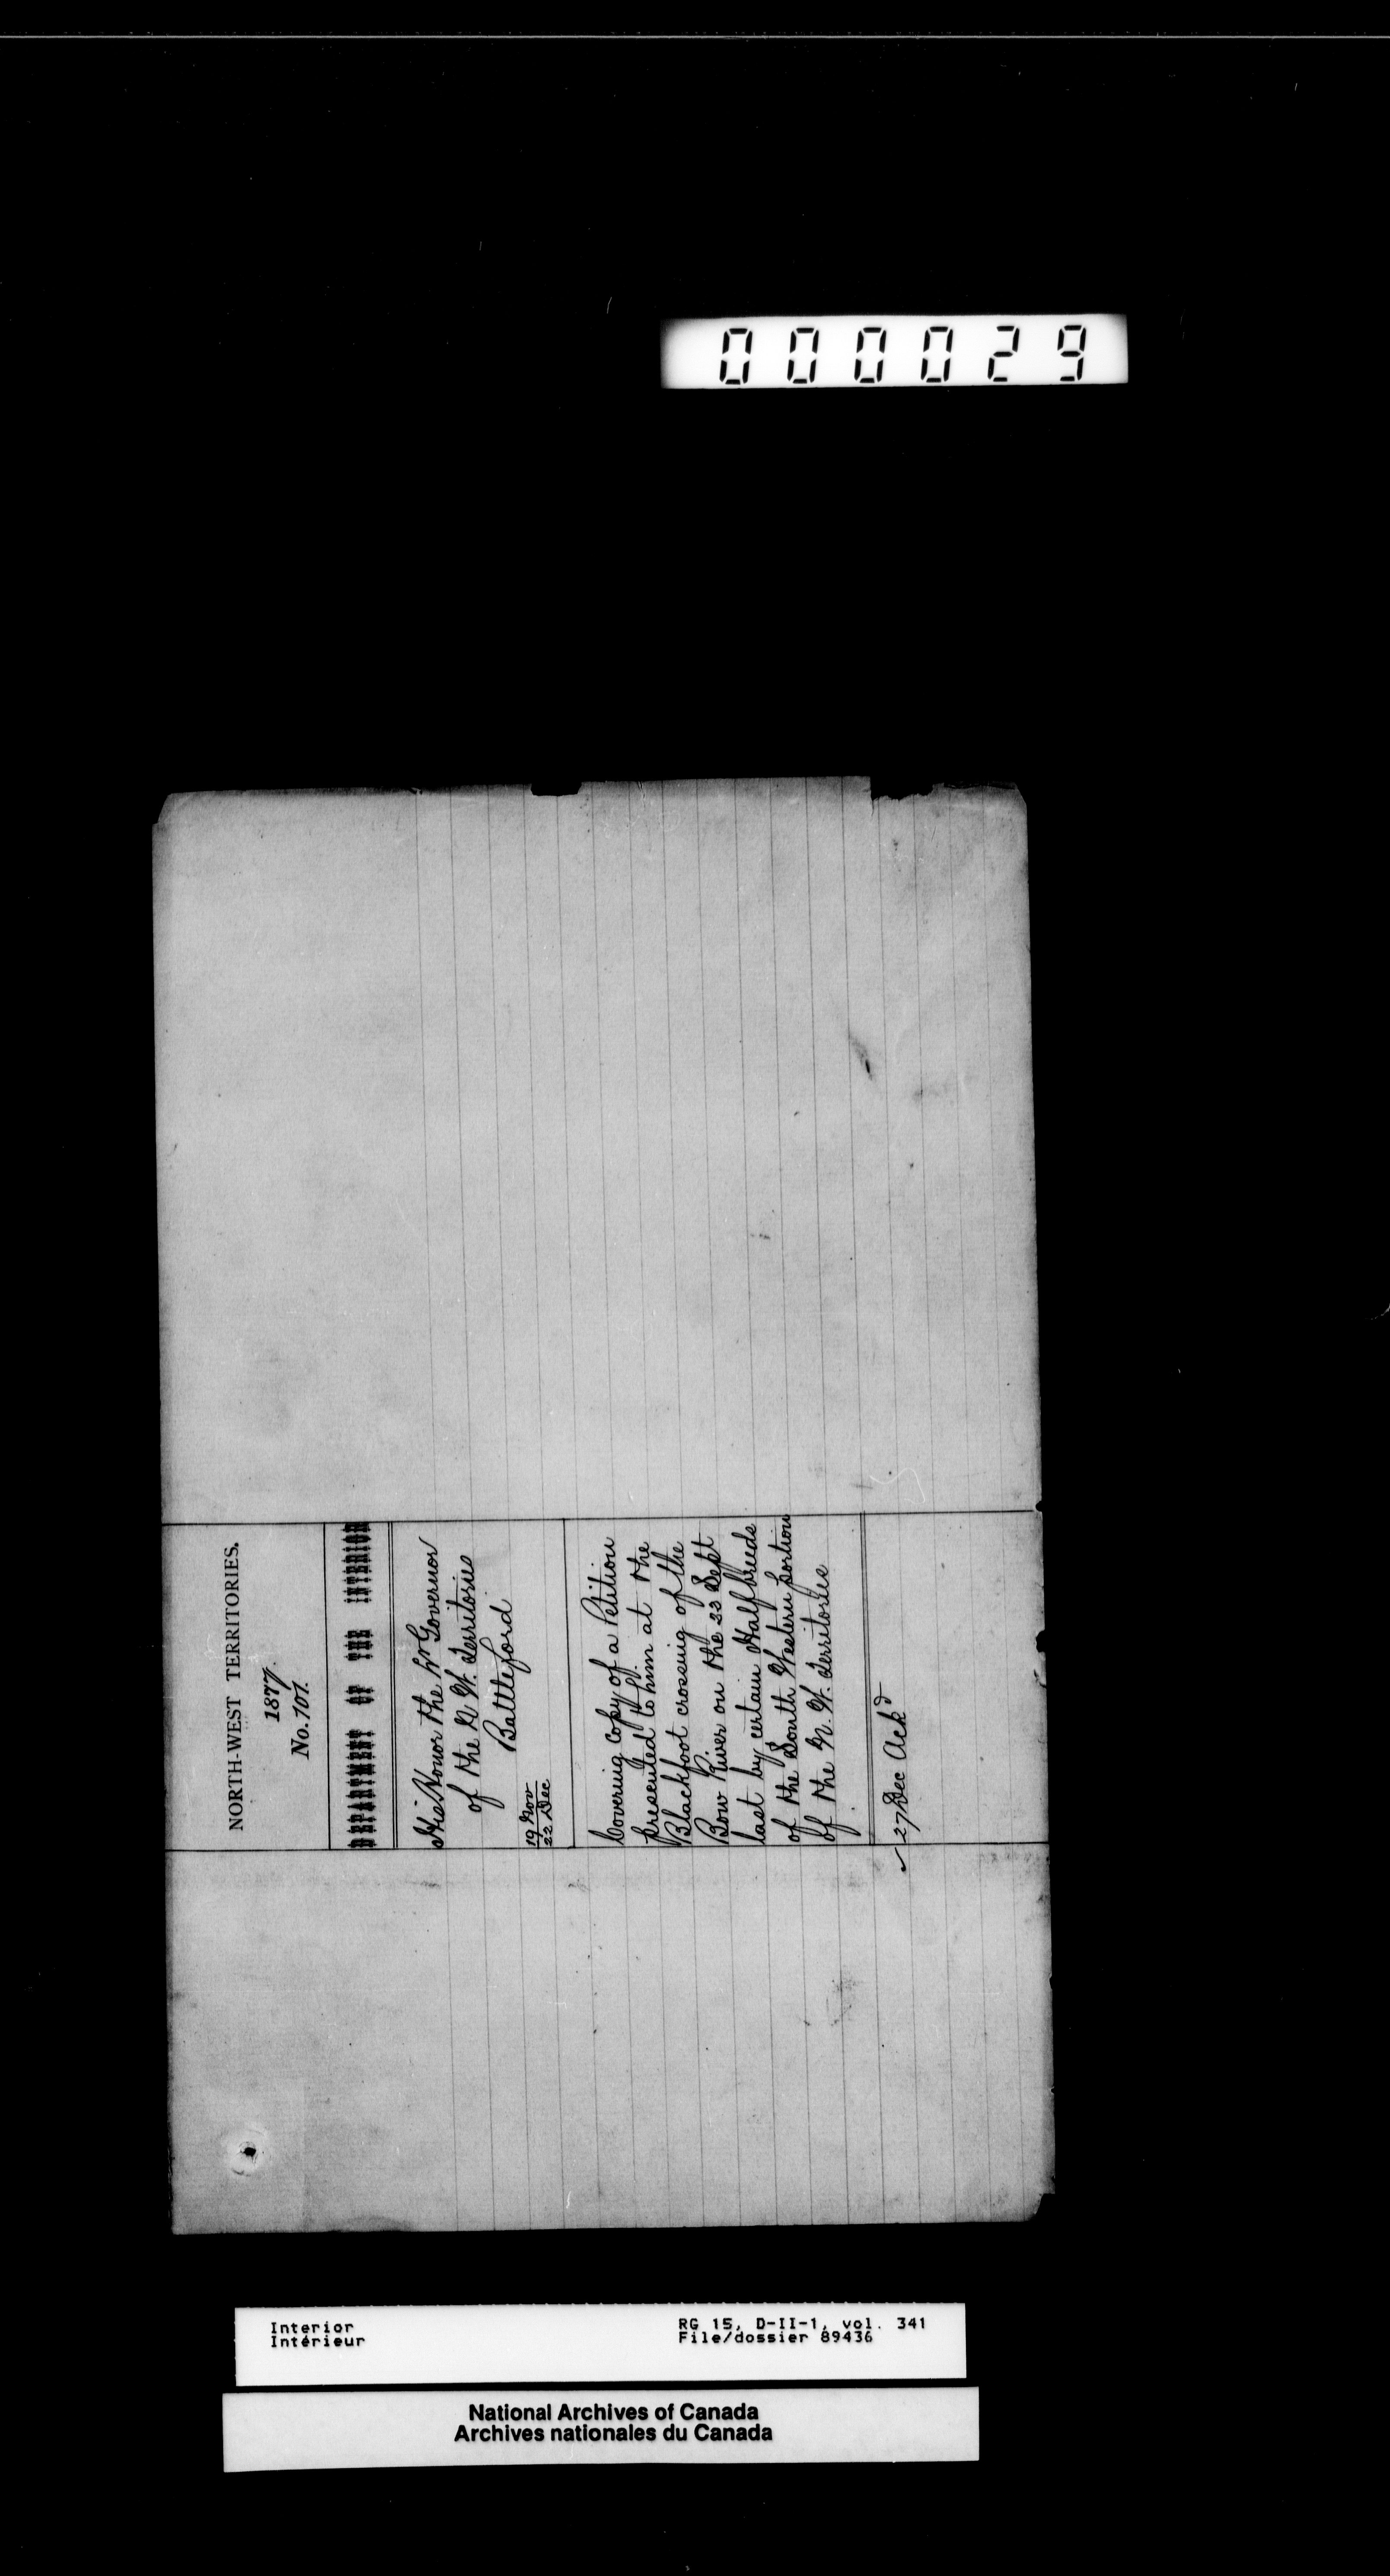 000029
NORTH-WEST TERRITORIES.
1877.
No. 101.
DEPARTMENT OF THE INTERIOR
His Honor the Lt Governor
of the N. W. Territories
Battleford
19 Nov
22 Dec
Covering copy of a Petition
presented to him at the
Blackfoot crossing of the
Bow River on the 23 Sept
last by certain Halfbreeds
of the South Western portion
of the N. W. Territories
✓ 27 Dec Ackd
Interior
Intérieur
RG 15, D-II-1, vol. 341
File/dossier 89436
National Archives of Canada
Archives nationales du Canada